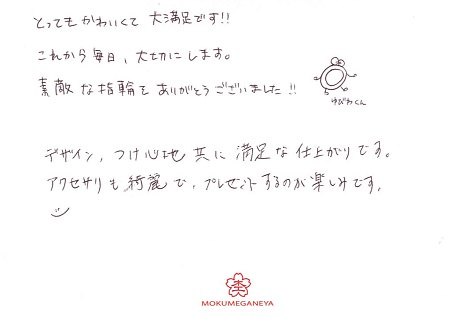 とってもかわいくて 大満足です!!
これから毎日、大切にします。
素敵な指輪をありがとうございました!!
ゆびわくん
デザイン、つけ心地 共に 満足な仕上がりです。
アクセサリも綺麗で、プレゼントするのが楽しみです。
MOKUMEGANEYA